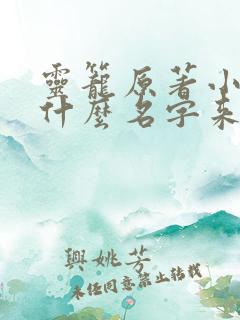 靈籠原著小
什麼名字來
興姚芳
未经同意禁止转载